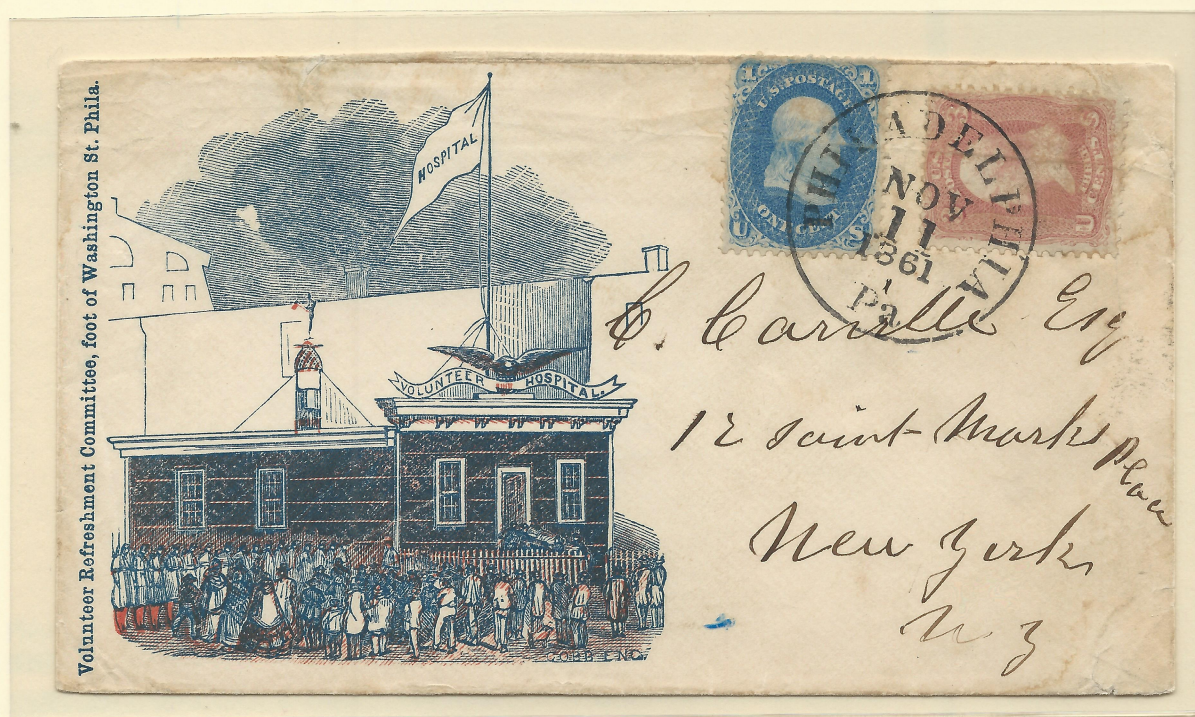 Volunteer Refreshment Committee, foot of Washington St. Phila.
HOSPITAL
VOLUNTEER HOSPITAL.
COBB ENG.
U.S. POSTAGE
1 1
ONE
U S
U
PHILADELPHIA
NOV
11
1861
Pa
C. Esq
12 Saint Marks Place
New York
N. Y